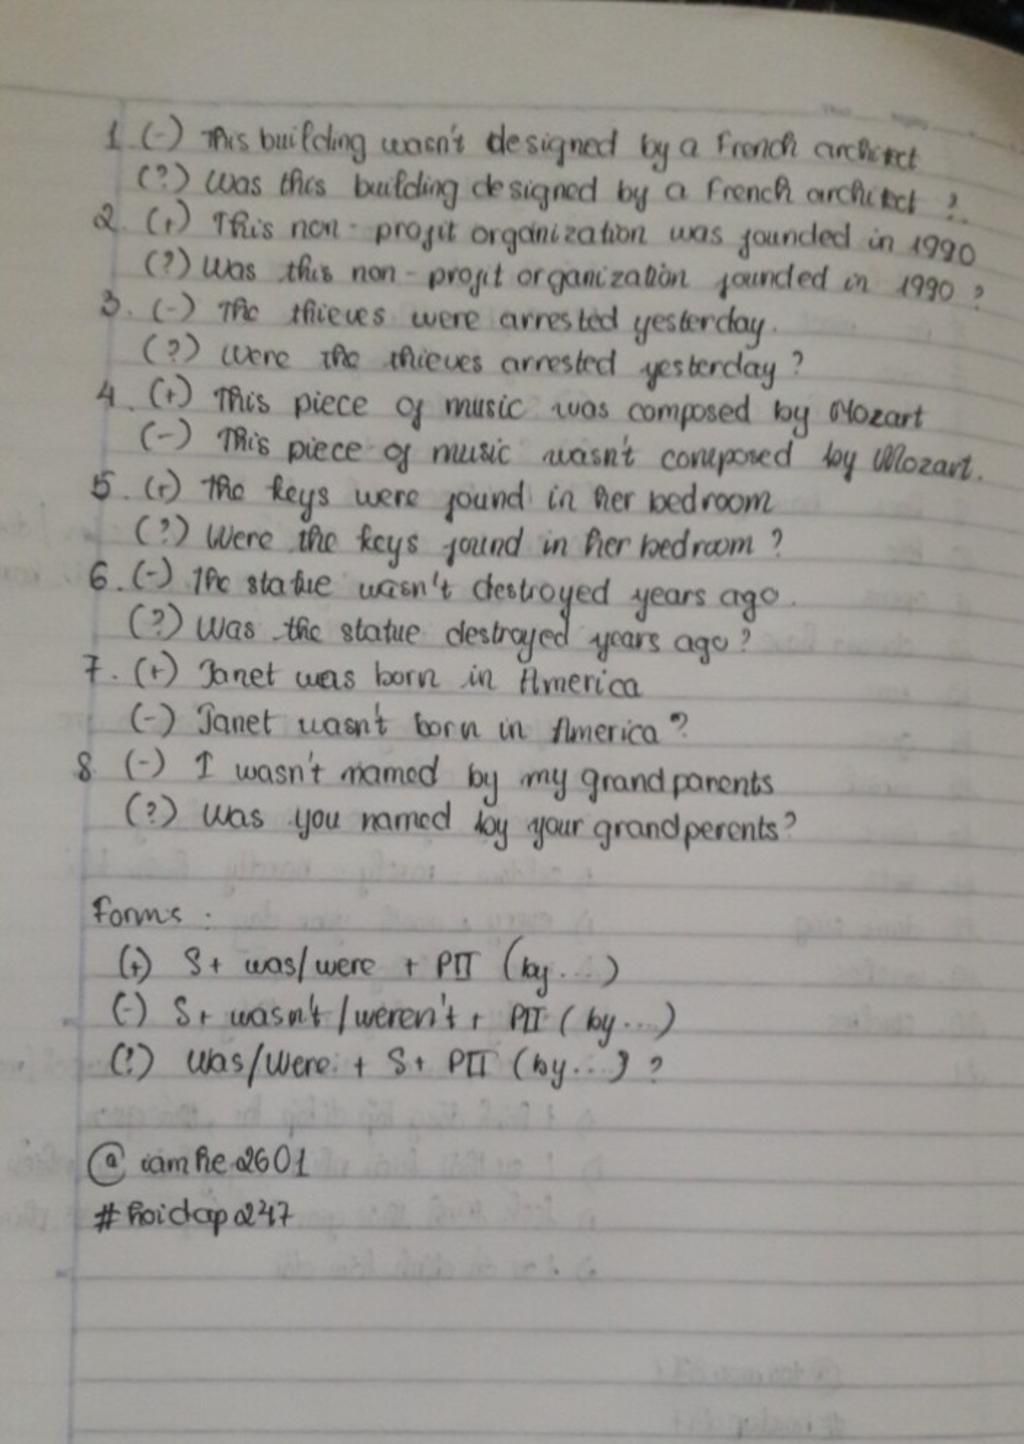 1. (-) This building wasn't designed by a French architect
(?) Was this building designed by a French architect ?
2. (+) This non-profit organization was founded in 1990
(?) Was this non-profit organization founded in 1990 ?
3. (-) The thieves were arrested yesterday.
(?) Were the thieves arrested yesterday ?
4. (+) This piece of music was composed by Mozart
(-) This piece of music wasn't composed by Mozart.
5. (+) The keys were found in her bedroom
(?) Were the keys found in her bedroom ?
6. (-) The statue wasn't destroyed years ago.
(?) Was the statue destroyed years ago ?
7. (+) Janet was born in America
(-) Janet wasn't born in America ?
8 (-) I wasn't named by my grandparents
(?) Was you named by your grandperents ?
Forms :
(+) S + was/were + PII (by...)
(-) S + wasn't/weren't + PII (by...)
(?) Was/Were + S + PII (by...) ?
@ iamhe2601
#hoidap247